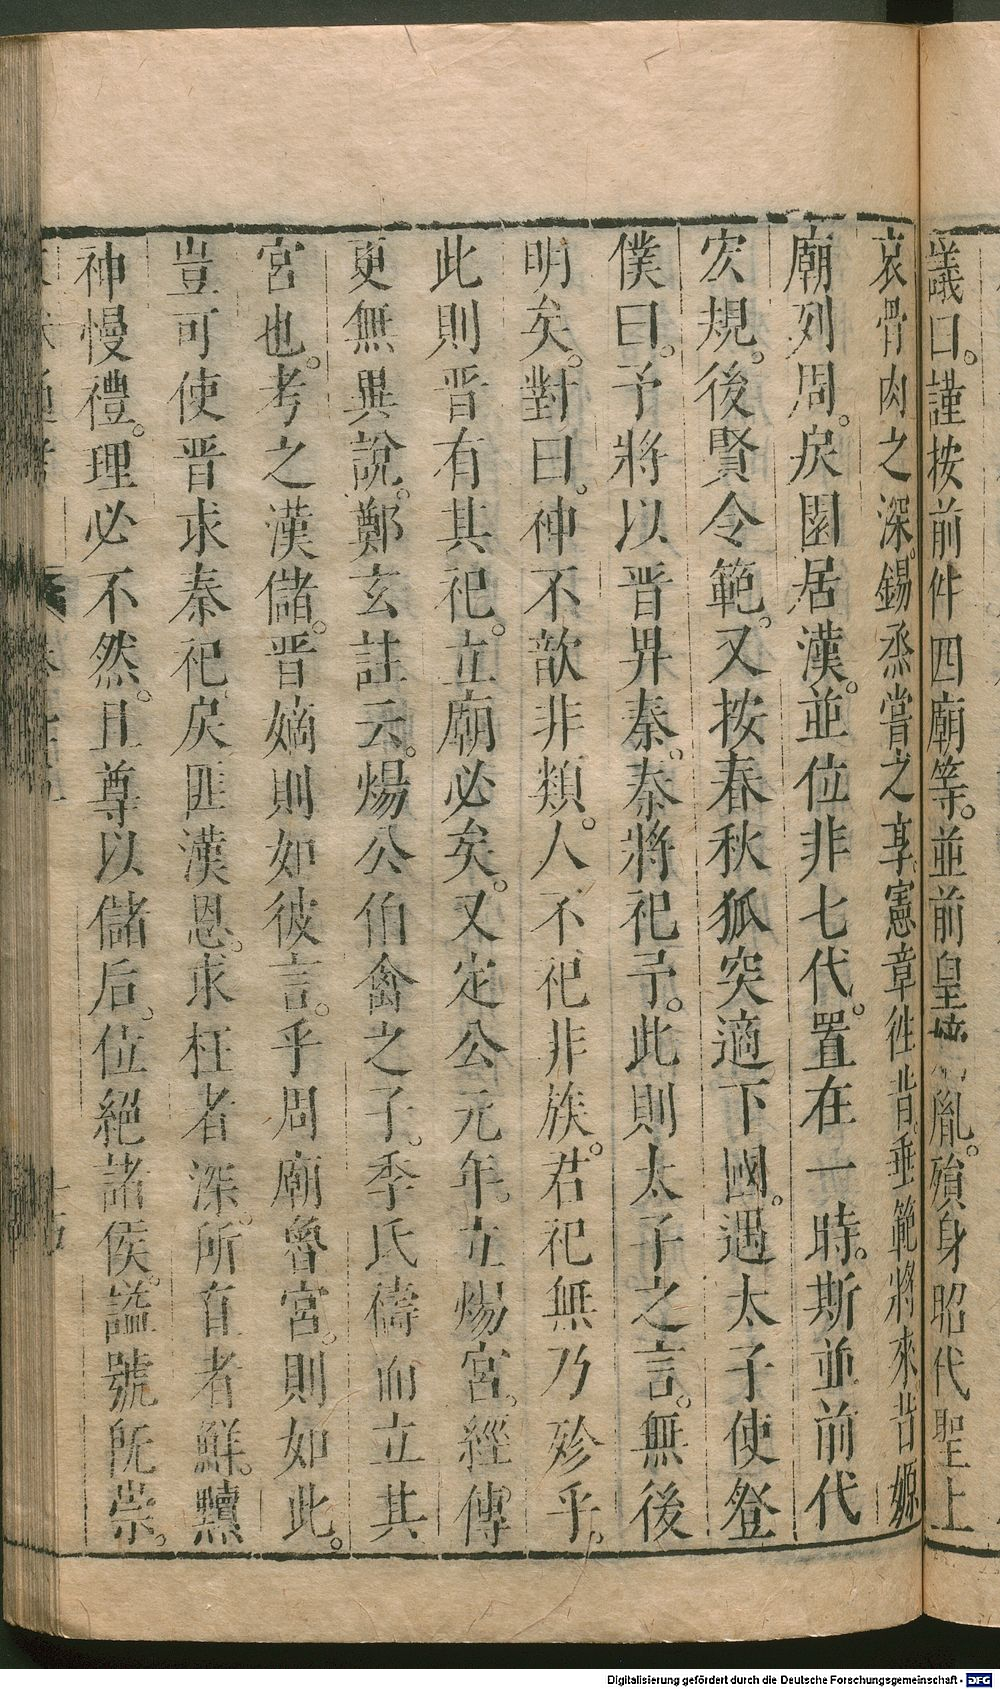 議曰。謹按前件四廟等。並前皇胤。殞身昭代聖上
哀骨肉之深。錫烝嘗之享。憲章往昔。垂範將來昔嫄
廟列周。戾園居漢。並位非七代。置在一時。斯並前代
宏規。後賢令範。又按春秋狐突適下國。遇太子使登
僕曰。予將以晋畀秦。秦將祀予。此則太子之言。無後
明矣。對曰。神不歆非類。人不祀非族。君祀無乃殄乎。
此則晋有其祀。立廟必矣。又定公元年。立煬宮。經傳
更無異說。鄭玄註云。煬公伯禽之子。季氏禱而立其
宮也。考之漢儲。晋嫡則如彼言。乎周廟魯宮。則如此。
豈可使晋求秦祀戾匪漢恩。求枉者深。所直者鮮。黷
神慢禮。理必不然。且尊以儲后。位絕諸侯。謚號旣崇。
Digitalisierung gefördert durch die Deutsche Forschungsgemeinschaft - DFG